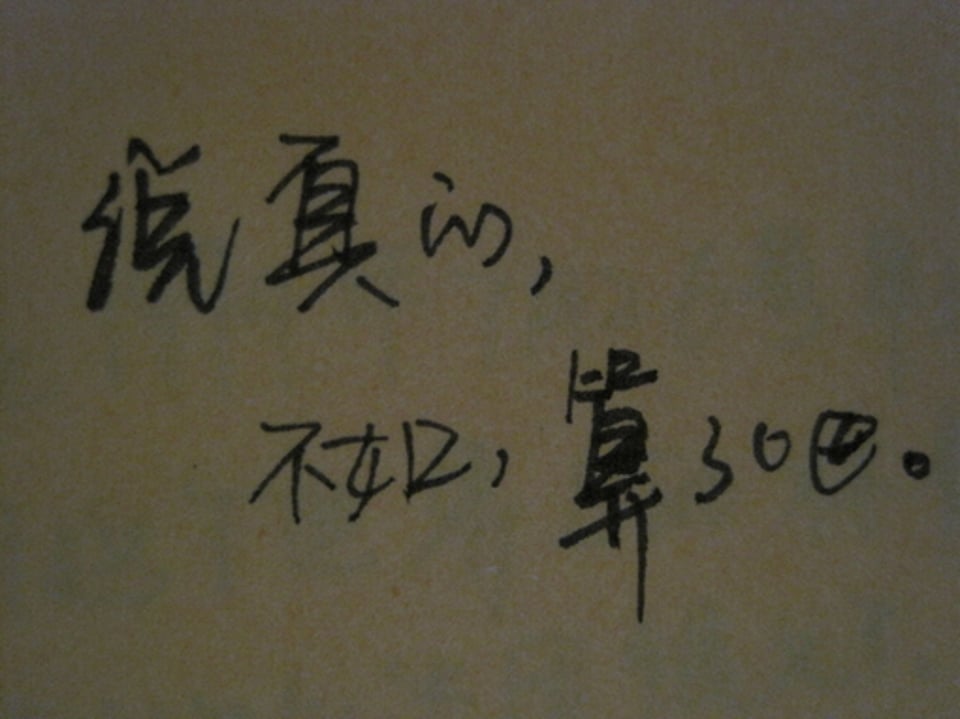 说真的，
不如，算了吧。